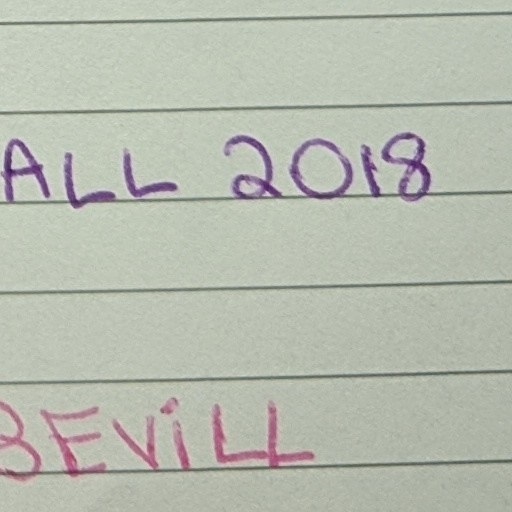 ALL 2018
BEViLL